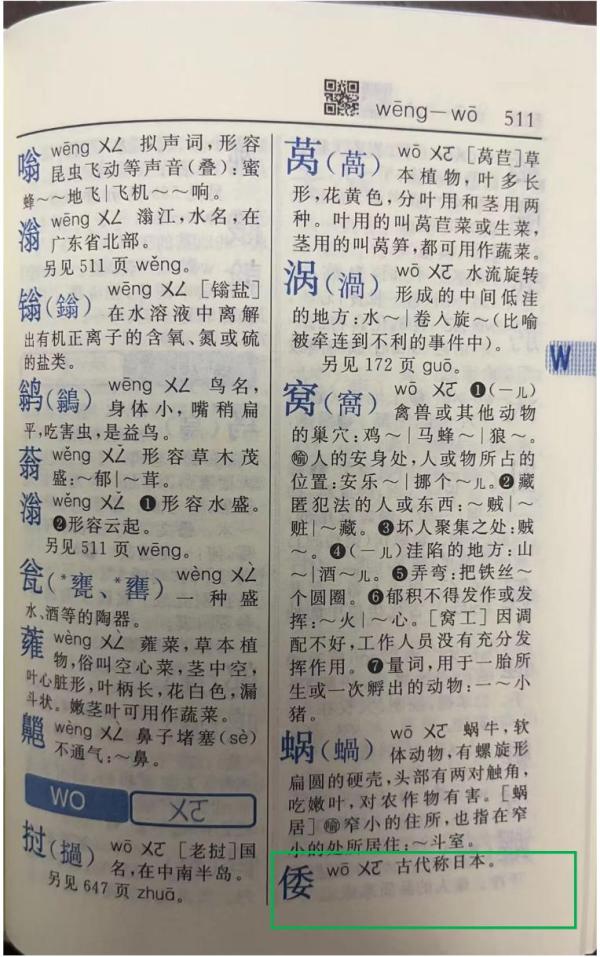 wēng－wō 511
嗡 wēng ㄨㄥ 拟声词，形容
昆虫飞动等声音（叠）：蜜
蜂～～地飞|飞机～～响。
滃 wēng ㄨㄥ 滃江，水名，在
广东省北部。
另见 511 页 wěng。
镒(鎓) wēng ㄨㄥ [鎓盐]
在水溶液中离解
出有机正离子的含氧、氮或硫
的盐类。
鹟(鶲) wēng ㄨㄥ 鸟名，
身体小，嘴稍扁
平，吃害虫，是益鸟。
蓊 wěng ㄨㄥˇ 形容草木茂
盛：～郁|～茸。
滃 wěng ㄨㄥˇ ❶形容水盛。
❷形容云起。
另见 511 页 wēng。
瓮(*甕、*罋) wèng ㄨㄥˋ
一种盛
水、酒等的陶器。
蕹 wèng ㄨㄥˋ 蕹菜，草本植
物，俗叫空心菜，茎中空，
叶心脏形，叶柄长，花白色，漏
斗状。嫩茎叶可用作蔬菜。
齆 wèng ㄨㄥˋ 鼻子堵塞(sè)
不通气：～鼻。
WO ㄨㄛ
挝(撾) wō ㄨㄛ [老挝]国
名，在中南半岛。
另见 647 页 zhuā。
莴(萵) wō ㄨㄛ [莴苣]草
本植物，叶多长
形，花黄色，分叶用和茎用两
种。叶用的叫莴苣菜或生菜，
茎用的叫莴笋，都可用作蔬菜。
涡(渦) wō ㄨㄛ 水流旋转
形成的中间低洼
的地方：水～|卷入旋～(比喻
被牵连到不利的事件中)。
另见 172 页 guō。
窝(窩) wō ㄨㄛ ❶(－儿)
禽兽或其他动物
的巢穴：鸡～|马蜂～|狼～。
喻人的安身处，人或物所占的
位置：安乐～|挪个～儿。❷藏
匿犯法的人或东西：～贼|～
赃|～藏。❸坏人聚集之处：贼
～。❹(－儿)洼陷的地方：山
～|酒～儿。❺弄弯：把铁丝～
个圆圈。❻郁积不得发作或发
挥：～火|～心。[窝工]因调
配不好，工作人员没有充分发
挥作用。❼量词，用于一胎所
生或一次孵出的动物：一～小
猪。
蜗(蝸) wō ㄨㄛ 蜗牛，软
体动物，有螺旋形
扁圆的硬壳，头部有两对触角，
吃嫩叶，对农作物有害。[蜗
居]喻窄小的住所，也指在窄
小的处所居住：～斗室。
倭 wō ㄨㄛ 古代称日本。
W